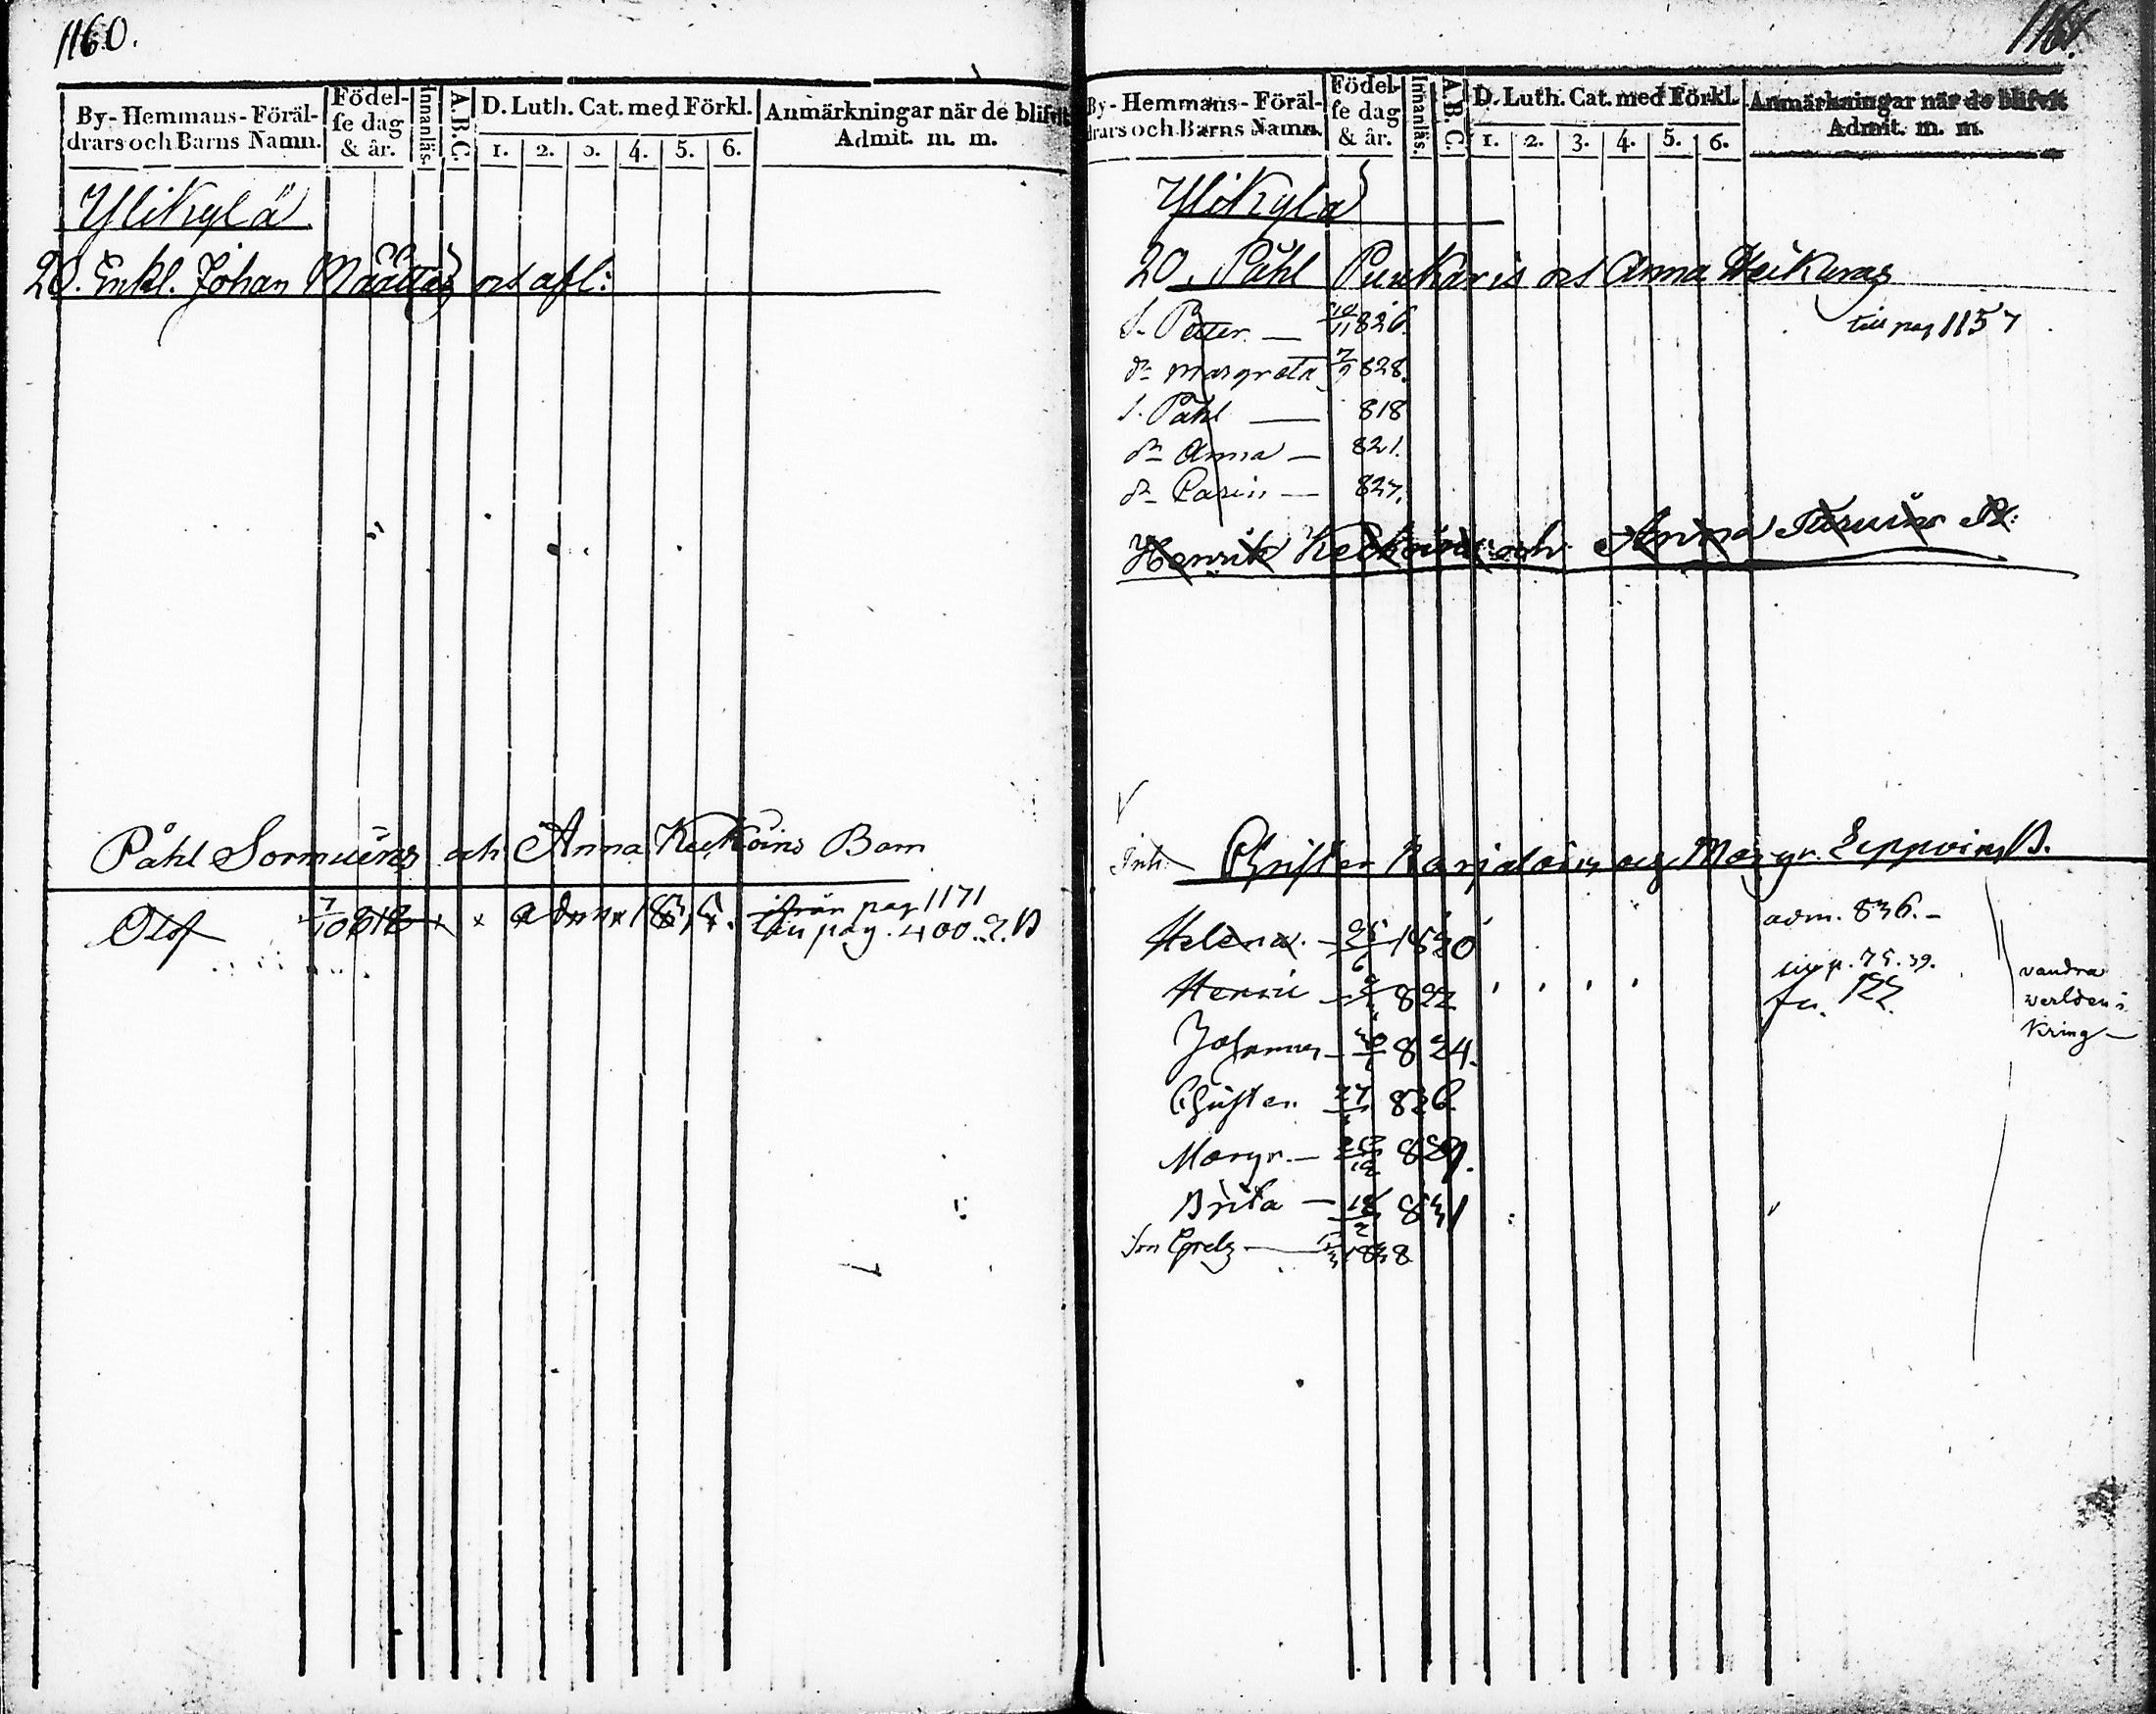 1160.
By-Hemmans-Föräl-
drars och Barns Namn.
Födel-
se dag
& år.
Innanläs.
A.B.C.
D. Luth. Cat. med Förkl.
1. 2. 3. 4. 5. 6.
Anmärkningar när de blifvit
Admit. m. m.
Ylikylä
20. Enkl. Johan Määttäs och afl:
Påhl Sormuins och Anna Keckoins Barn
Olof 7/10 818 x x adm 1835. ifrån pag 1171
till pag. 400.
1161.
By-Hemmans-Föräl-
drars och Barns Namn.
Födel-
se dag
& år.
Innanläs.
A.B.C.
D. Luth. Cat. med Förkl.
1. 2. 3. 4. 5. 6.
Anmärkningar när de blifvit
Admit. m. m.
Ylikylä
20. Påhl Puukaris och Anna Heikuras
S. Petter — 826. till pag 1157
dr Margreta 7/9 828.
S. Påhl — 818
dr Anna — 821.
dr Carin — 827.
Henrik Keckoins och Anna
Inh. Christer Karjalains och Margr. Eppoins B.
Helena. — 25/6 1820 adm. 836. —
Henric — 822
Johannes — 824.
Christer 27 826.
Margr. — 829.
Brita — 18/2 831
Son Grels — 1838
vandra
verlden i
kring —